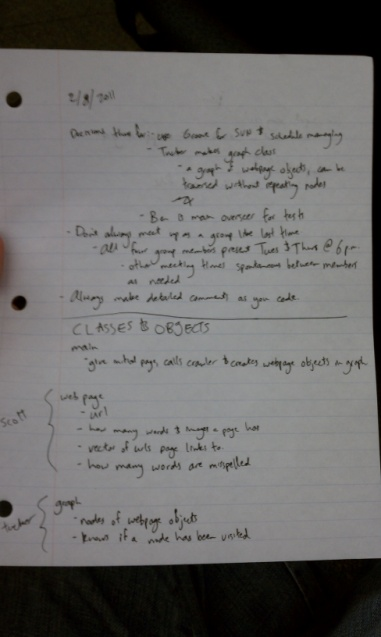 2/8/2011
Decisions thus far: - use Gnome for SVN & schedule managing
- Tucker makes graph class
- a graph of webpage objects, can be
traversed without repeating nodes
- Ben is main overseer for tests
- Don't always meet up as a group like last time
- All four group members present Tues & Thurs @ 6pm
- other meeting times spontaneous between members
as needed
- Always make detailed comments as you code
CLASSES & OBJECTS
main
- give initial page, calls crawler & creates webpage objects in graph
scott
webpage
- url
- how many words & images a page has
- vector of urls page links to
- how many words are misspelled
tucker
graph
- nodes of webpage objects
- knows if a node has been visited